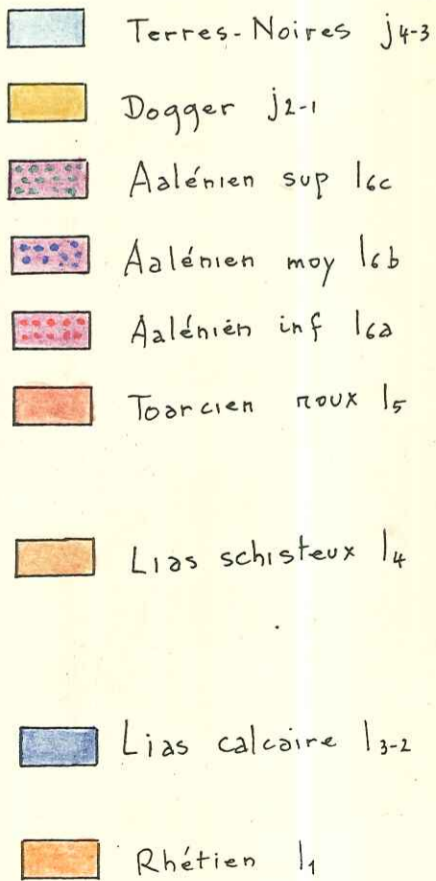 Terres-Noires j4-3
Dogger j2-1
Aalénien sup l6c
Aalénien moy l6b
Aalénién inf l6a
Toarcien roux l5
Lias schisteux l4
Lias calcaire l3-2
Rhétien l1